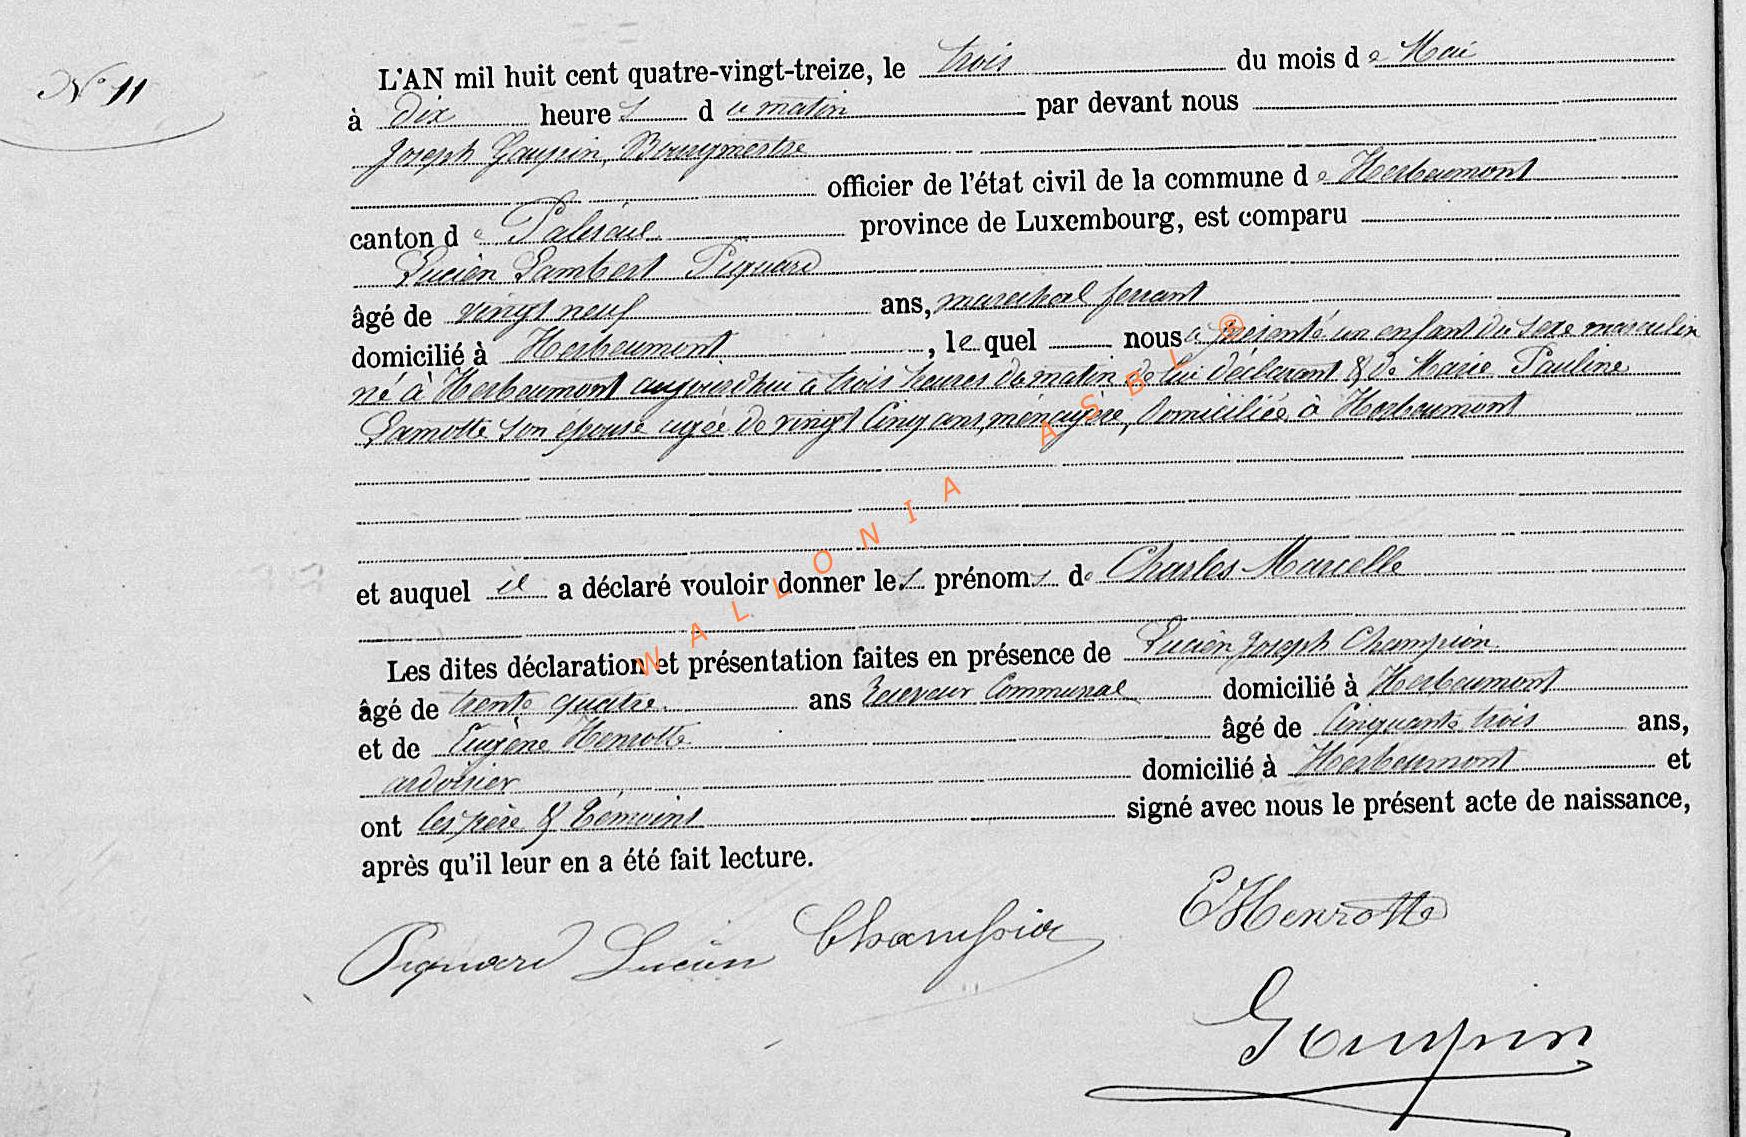 N° 11
L'AN mil huit cent quatre-vingt-treize, le trois du mois de Mai
à dix heures du matin par devant nous
Joseph Goupin, Bourgmestre
officier de l'état civil de la commune de Herbeumont
canton de Paliseul province de Luxembourg, est comparu
Lucien Lambert Piquard
âgé de vingt neuf ans, marechal ferrant
domicilié à Herbeumont, le quel nous a présenté un enfant du sexe masculin
né à Herbeumont aujourdhui à trois heures du matin de lui déclarant & de Marie Pauline
Lamotte son épouse agée de vingt cinq ans, ménagère, domiciliée à Herbeumont
et auquel il a déclaré vouloir donner les prénoms de Charles Marcelle
Les dites déclaration et présentation faites en présence de Lucien Joseph Champion
âgé de trente quatre ans Receveur Communal domicilié à Herbeumont
et de Eugène Henrotte âgé de Cinquante trois ans,
ardoisier domicilié à Herbeumont et
ont les père & témoins signé avec nous le présent acte de naissance,
après qu'il leur en a été fait lecture.
Piquard Lucien Champion E Henrotte
Goupin
WALLONIA ASBL ®